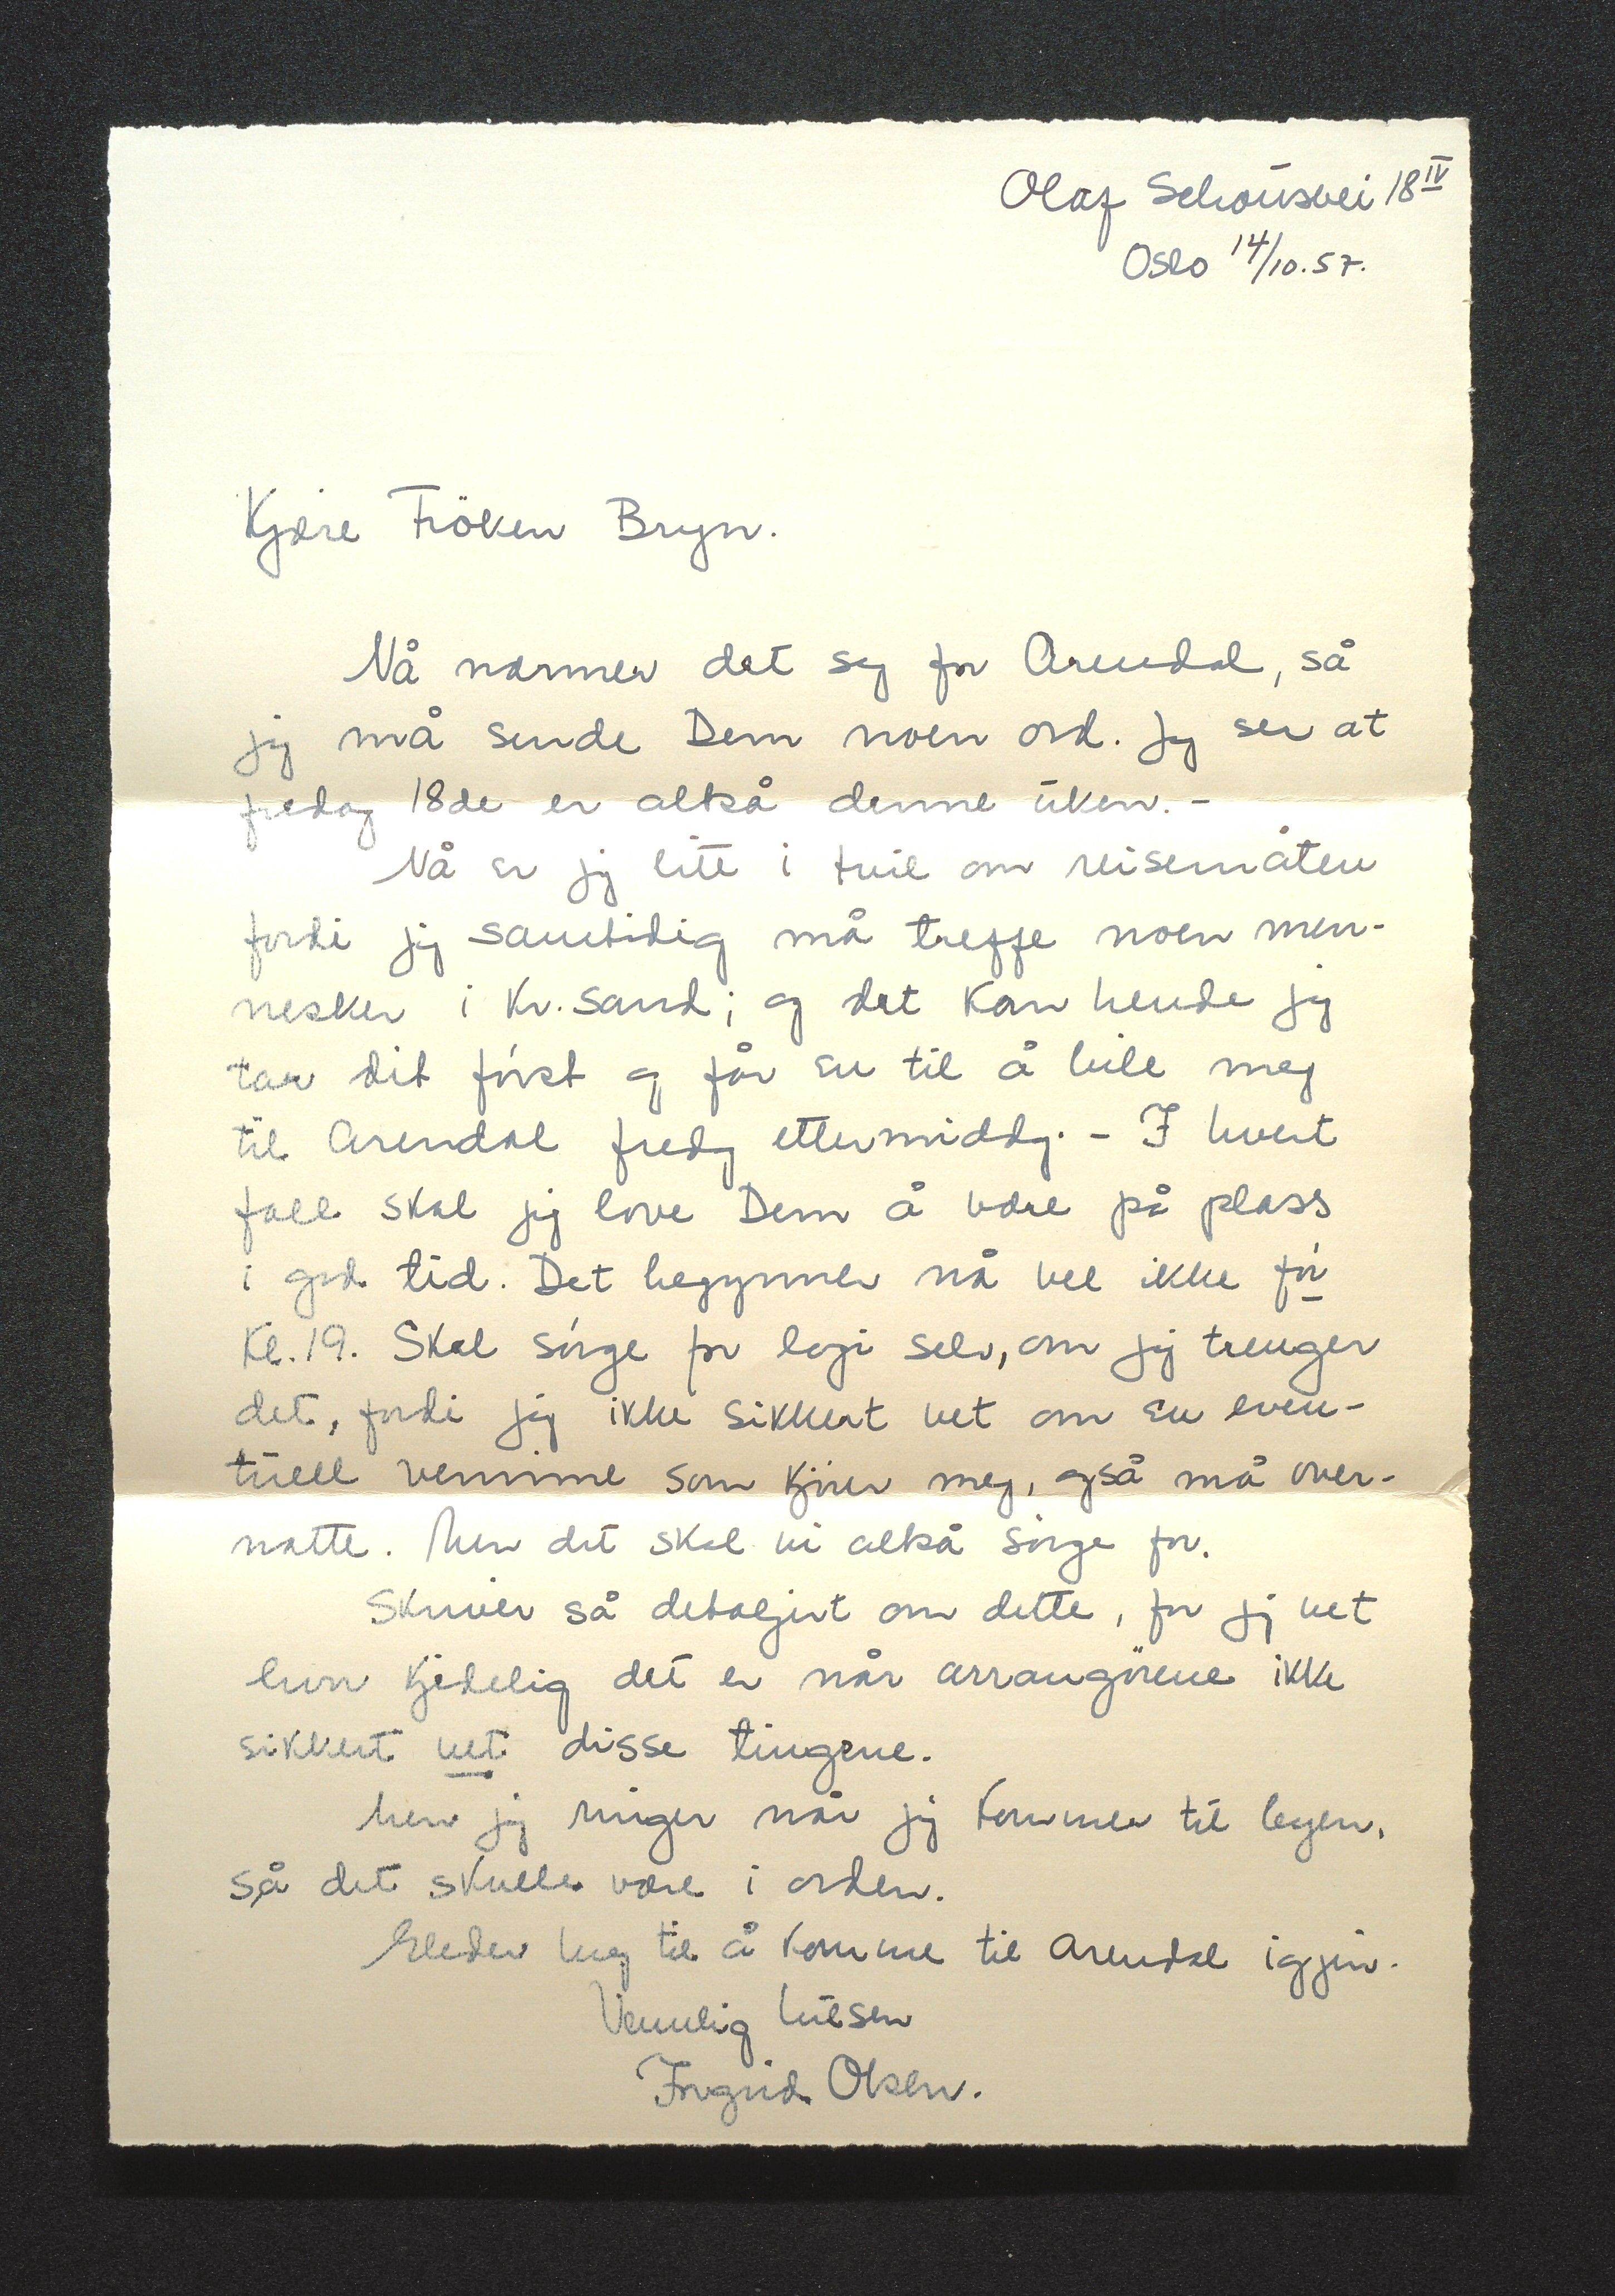 Olaf Schousvei 18 IV
Oslo 14/10.57.
Kjære Fröken Bryn.
Nå nærmer det seg for Arendal, så
jeg må sende Dem noen ord. Jeg ser at
fredag 18de er altså denne uken. -
Nå er jeg litt i tvil om reisemåten
fordi jeg samtidig må treffe noen men-
nesker i Kr.sand; og det kan hende jeg
tar dit först og får en til å bile meg
til Arendal fredag ettermiddag. - I hvert
fall skal jeg love Dem å være på plass
i god tid. Det begynner nå vel ikke för
Kl. 19. Skal sörge for logi selv, om jeg trenger
det, fordi jeg ikke sikkert vet om en even-
tuell venninne som kjörer meg, også må over-
natte. Men det skal vi altså sörge for.
Skriver så detaljert om dette, for jeg vet
hvor kjedelig det er når arrangörene ikke
sikkert vet disse tingene.
Men jeg ringer når jeg kommer til byen,
så det skulle være i orden.
Gleder meg til å komme til Arendal igjen.
Vennlig hilsen
Ingrid Olsen.